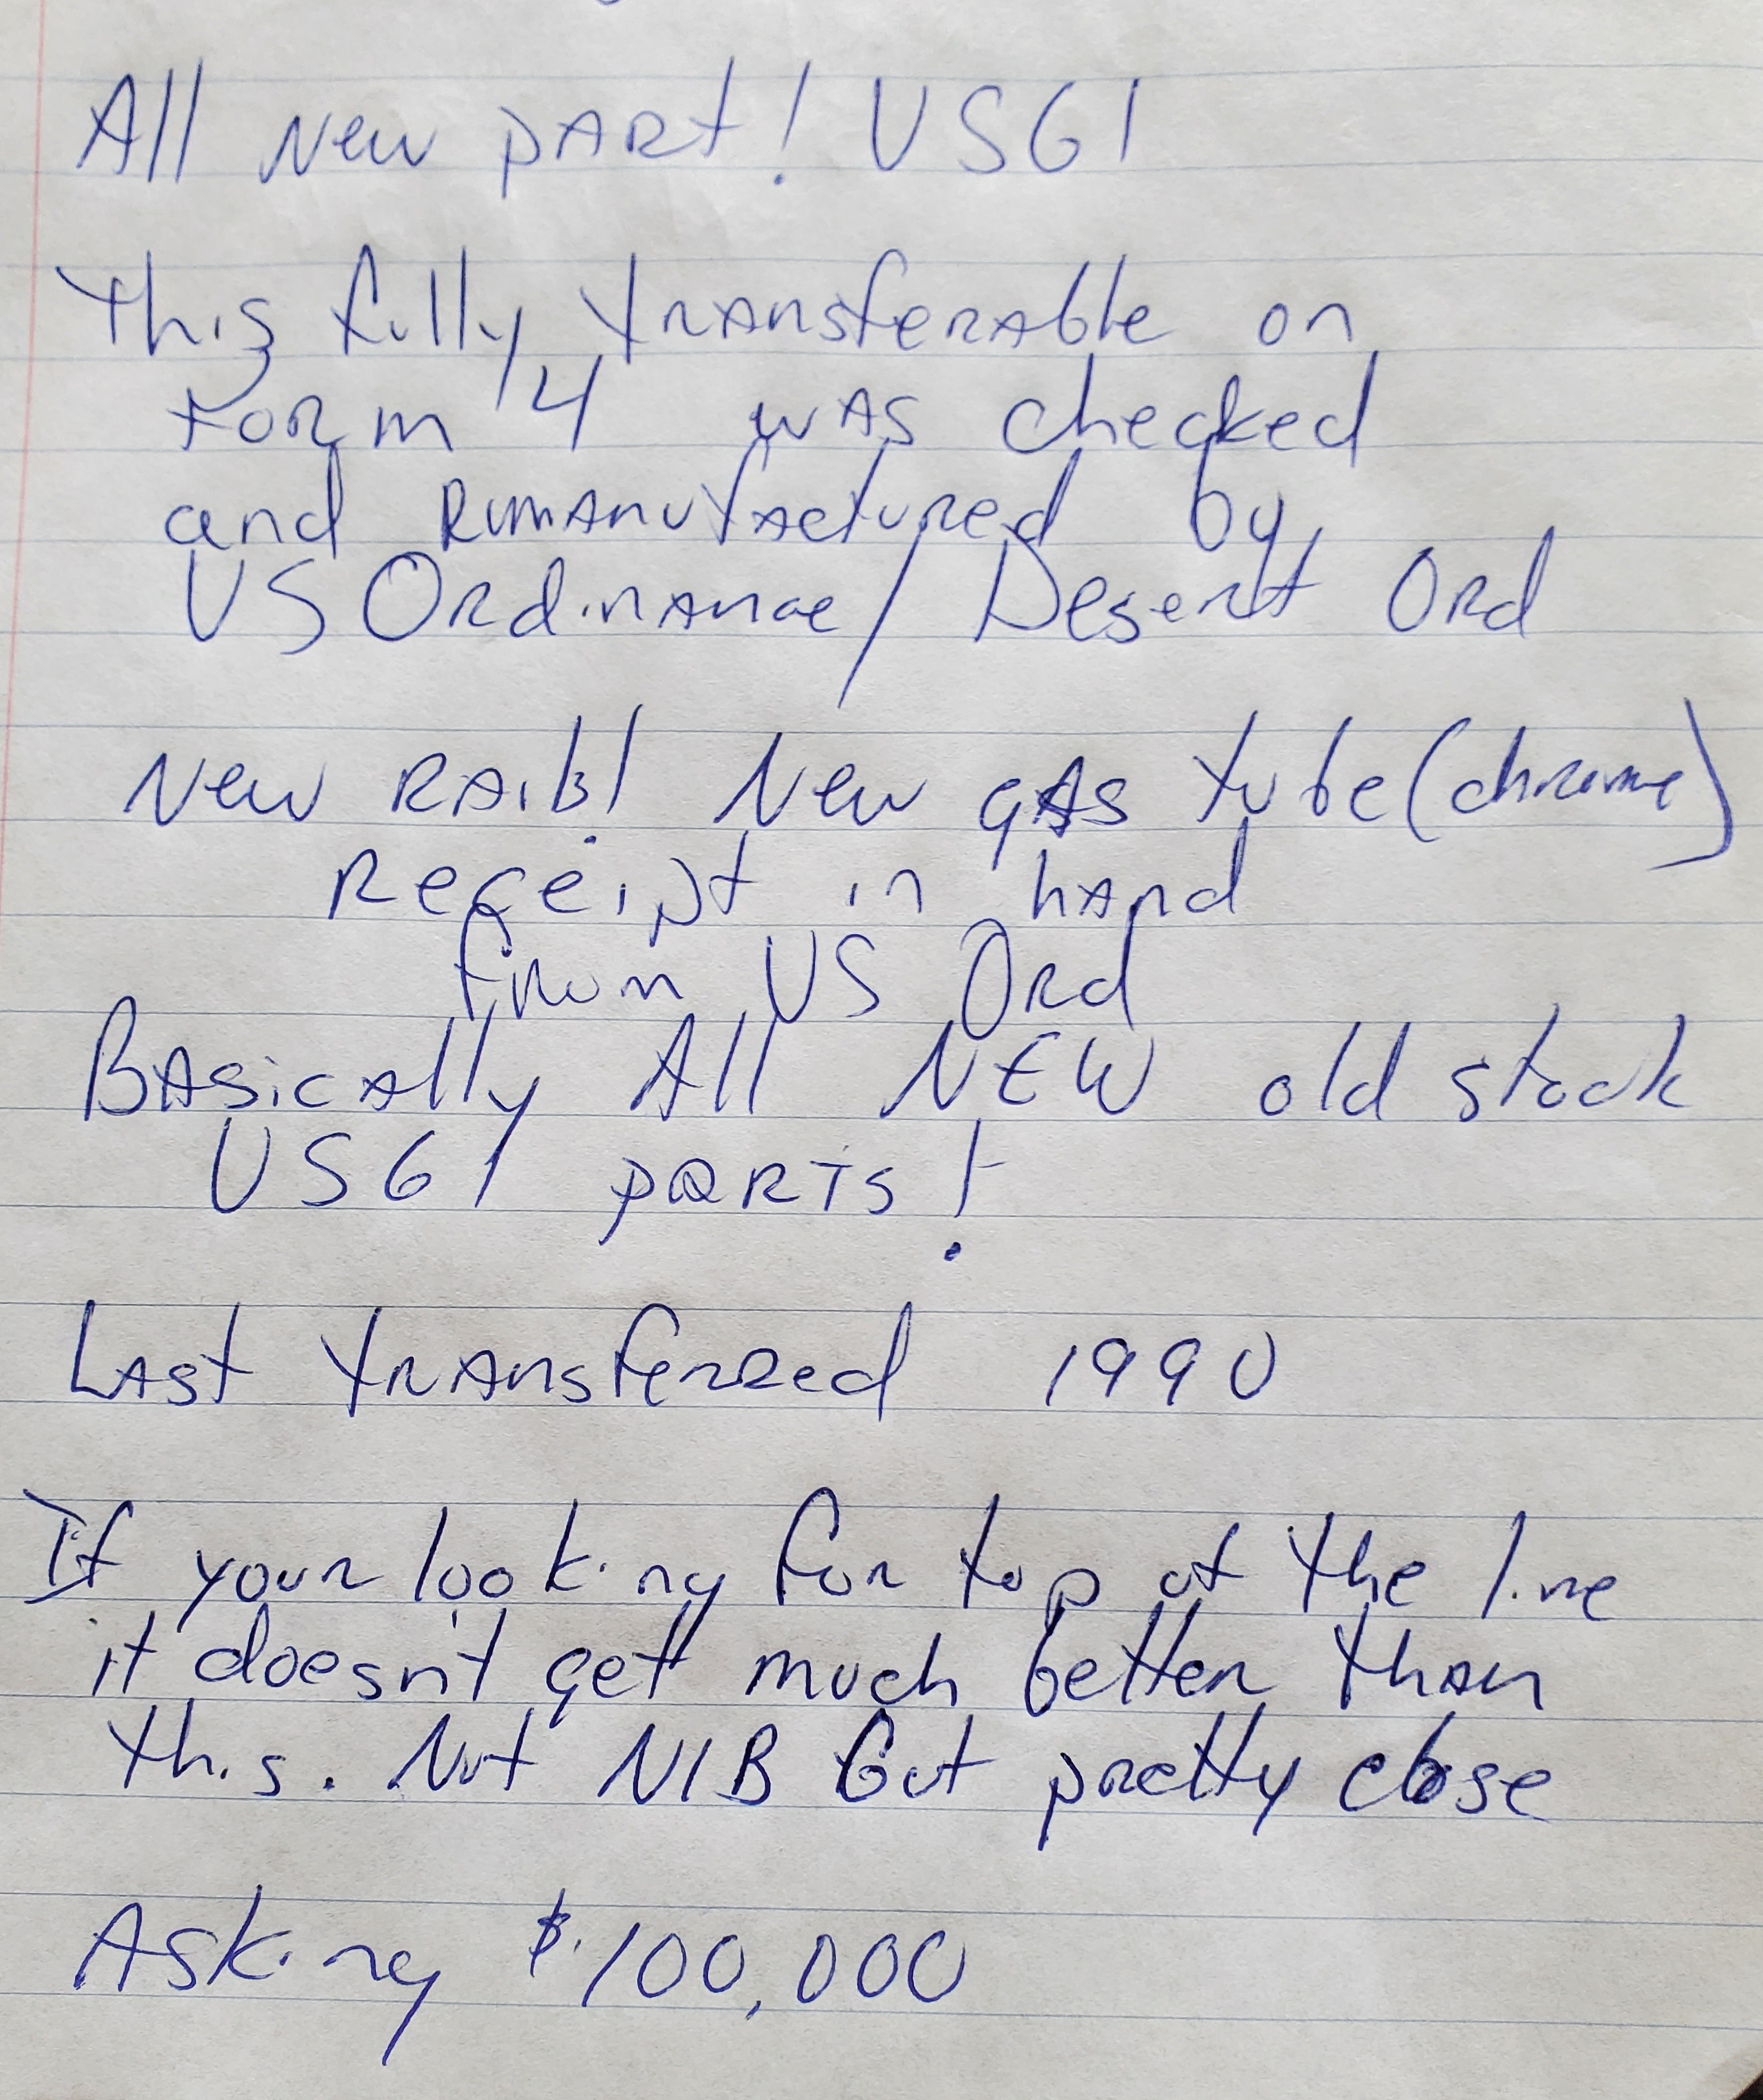 All New pARt! USGI
This fully transferable on
Form 4 was checked
and Rumanufactured by
US Ordinance/Desert Ord
New Rails! New gas tube (chrome)
Receipt in hand
from US Ord
Basically All NEW old stock
USGI parts!
Last transferred 1990
If your looking for top of the line
it doesn't get much better than
this. Not NIB but pretty close
Asking $100,000